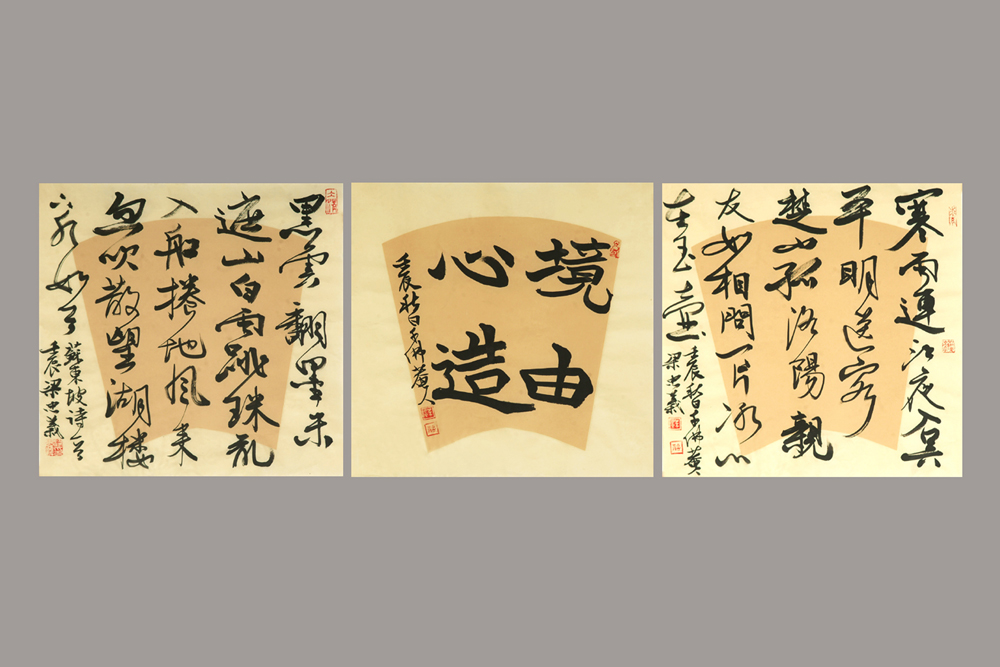 黑雲翻墨未
遮山白雨跳珠亂
入船捲地風來
忽吹散望湖樓
下水如天
蘇東坡詩一首
壬辰梁忠義
境由
心造
壬辰秋日于佛
寒雨連江夜入吳
平明送客
楚山孤洛陽親
友如相問一片冰心
在玉壺
壬辰
梁忠義